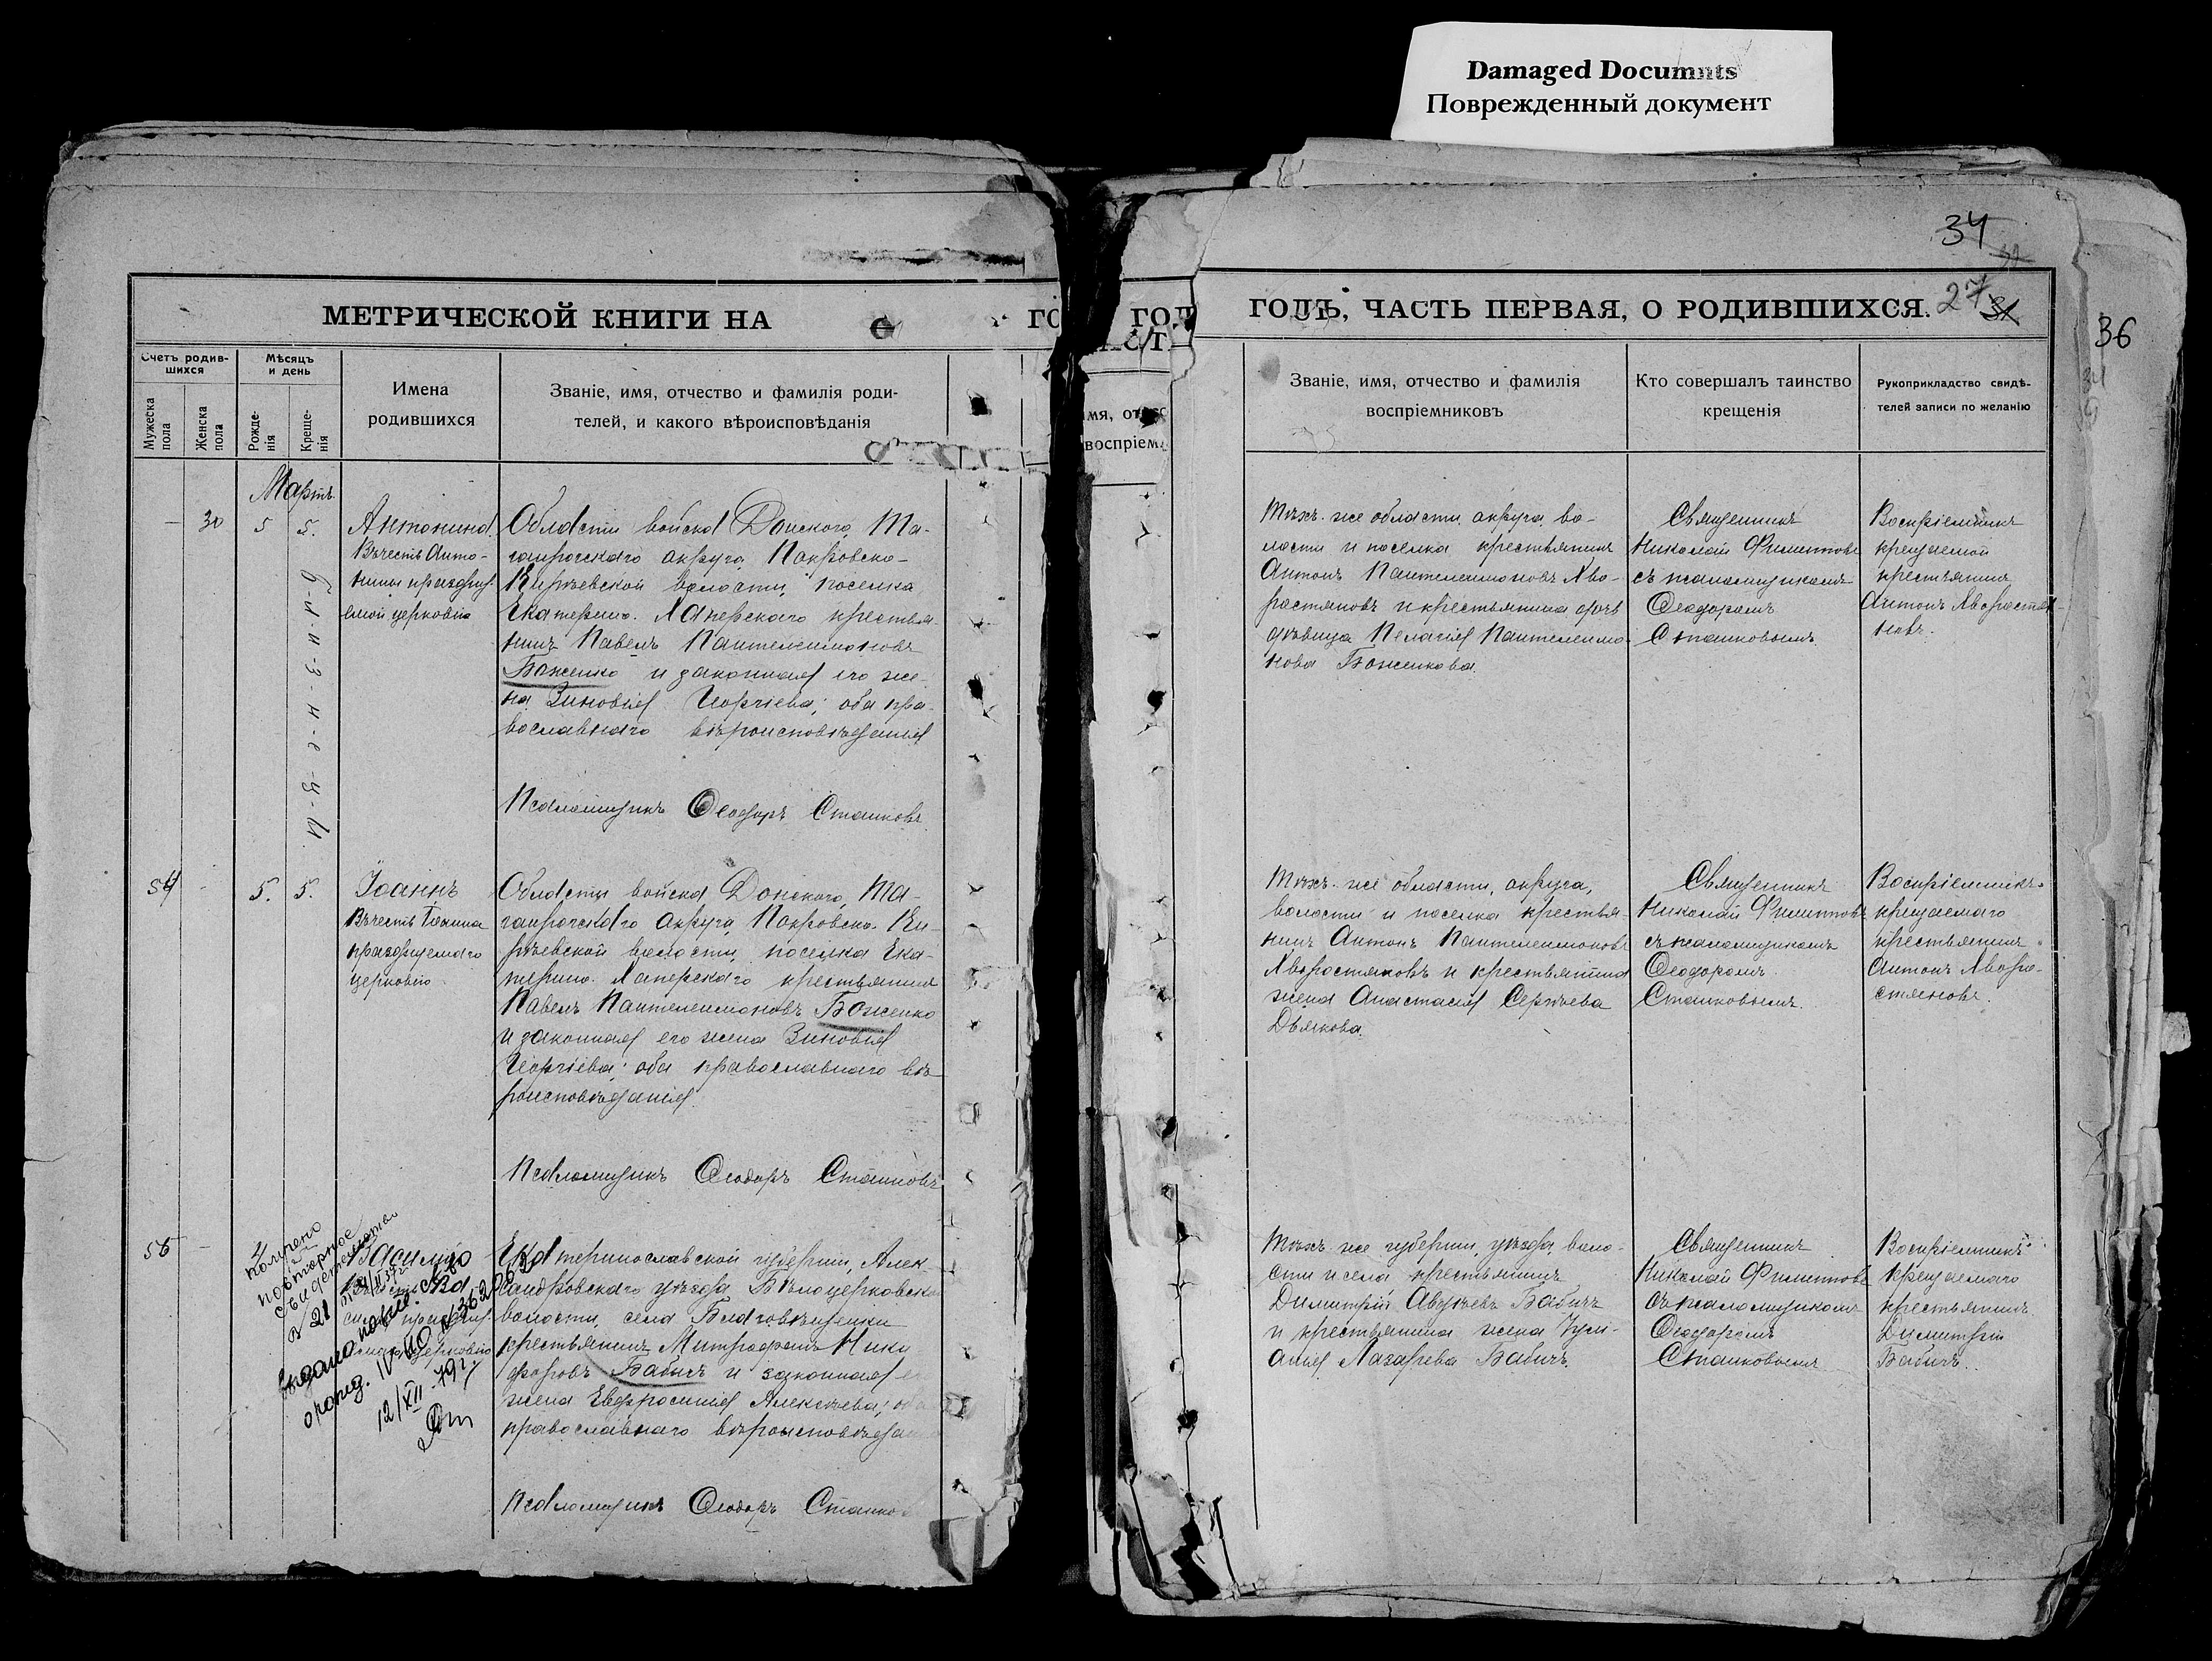 Damaged Documnts
Поврежденный документ
МЕТРИЧЕСКОЙ КНИГИ НА
Счетъ родив-
шихся
Мѣсяцъ
и день
Мужеска
пола
Женска
пола
Рожде-
нія
Креще-
нія
Имена
родившихся
Званіе, имя, отчество и фамилія роди-
телей, и какого вѣроисповѣданія
Мартъ
30
5
5.
Антонина
Въ честь Анто-
нины празднуе-
мой церковію
Области войска Донского, Та-
ганрогскаго округа, Покровско-
Кирѣевской волости, поселка
Екатерино-Хаперскаго крестья-
нинъ Павелъ Пантелеимоновъ
Боженко и законная его же-
на Зиновія Георгіева; оба пра-
вославнаго вѣроисповѣданія
Псаломщикъ Ѳеодоръ Сташковъ
54
5.
5.
Іоаннъ
Въ честь Іоанна
празднуемаго
церковію
Области войска Донского, Та-
ганрогскаго округа, Покровско-Ки-
рѣевской волости, поселка Ека-
терино-Хаперскаго крестьянинъ
Павелъ Пантелеимоновъ Боженко
и законная его жена Зиновія
Георгіева; оба православнаго вѣ-
роисповѣданія
Псаломщикъ Ѳеодоръ Сташковъ
55
получено
повторное
свидетельство
12/XII-79г.
Екатеринославской губерніи, Алек-
сандровскаго уѣзда Бѣлоцерковской
волости, села Благовѣщенки
крестьянинъ Митрофанъ Ники
форовъ Бабичъ и законная
жена Евфросинія Алексѣева; оба
православнаго вѣроисповѣдан
Псаломщикъ Ѳеодоръ Сташко
34
27
36
ГОДЪ, ЧАСТЬ ПЕРВАЯ, О РОДИВШИХСЯ.
Званіе, имя, отчество и фамилія
воспріемниковъ
Кто совершалъ таинство
крещенія
Рукоприкладство свидѣ-
телей записи по желанію
Тѣхъ-же области, округа, во-
лости и поселка крестьянинъ
Антонъ Пантелеимоновъ Хво-
растяновъ и крестьянина дочь
дѣвица Пелагія Пантелеимо-
нова Боженкова.
Священникъ
Николай Филиповъ
съ псаломщикомъ
Ѳеодоромъ
Сташковымъ.
Воспріемникъ
крещаемой
крестьянинъ
Антонъ Хворостя-
новъ.
Тѣхъ-же области, округа,
волости и поселка крестья-
нинъ Антонъ Пантелеимоновъ
Хворостяновъ и крестьянина
жена Анастасія Сергѣева
Дьякова.
Священникъ
Николай Филиповъ
съ псаломщикомъ
Ѳеодоромъ
Сташковымъ.
Воспріемникъ
крещаемаго
крестьянинъ
Антонъ Хворо-
стяновъ.
Тѣхъ-же губерніи, уѣзда, воло-
сти и села крестьянинъ
Димитрій Авдѣевъ Бабичъ
и крестьянина жена Іулі-
анія Лазарева Бабичъ.
Священникъ
Николай Филиповъ
съ псаломщикомъ
Ѳеодоромъ
Сташковымъ
Воспріемникъ
крещаемаго
крестьянинъ
Димитрій
Бабичъ.